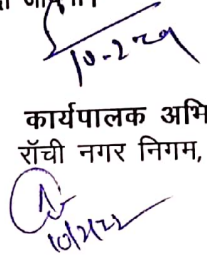 10-2-22
कार्यपालक अभि
राँची नगर निगम,
10/2/22